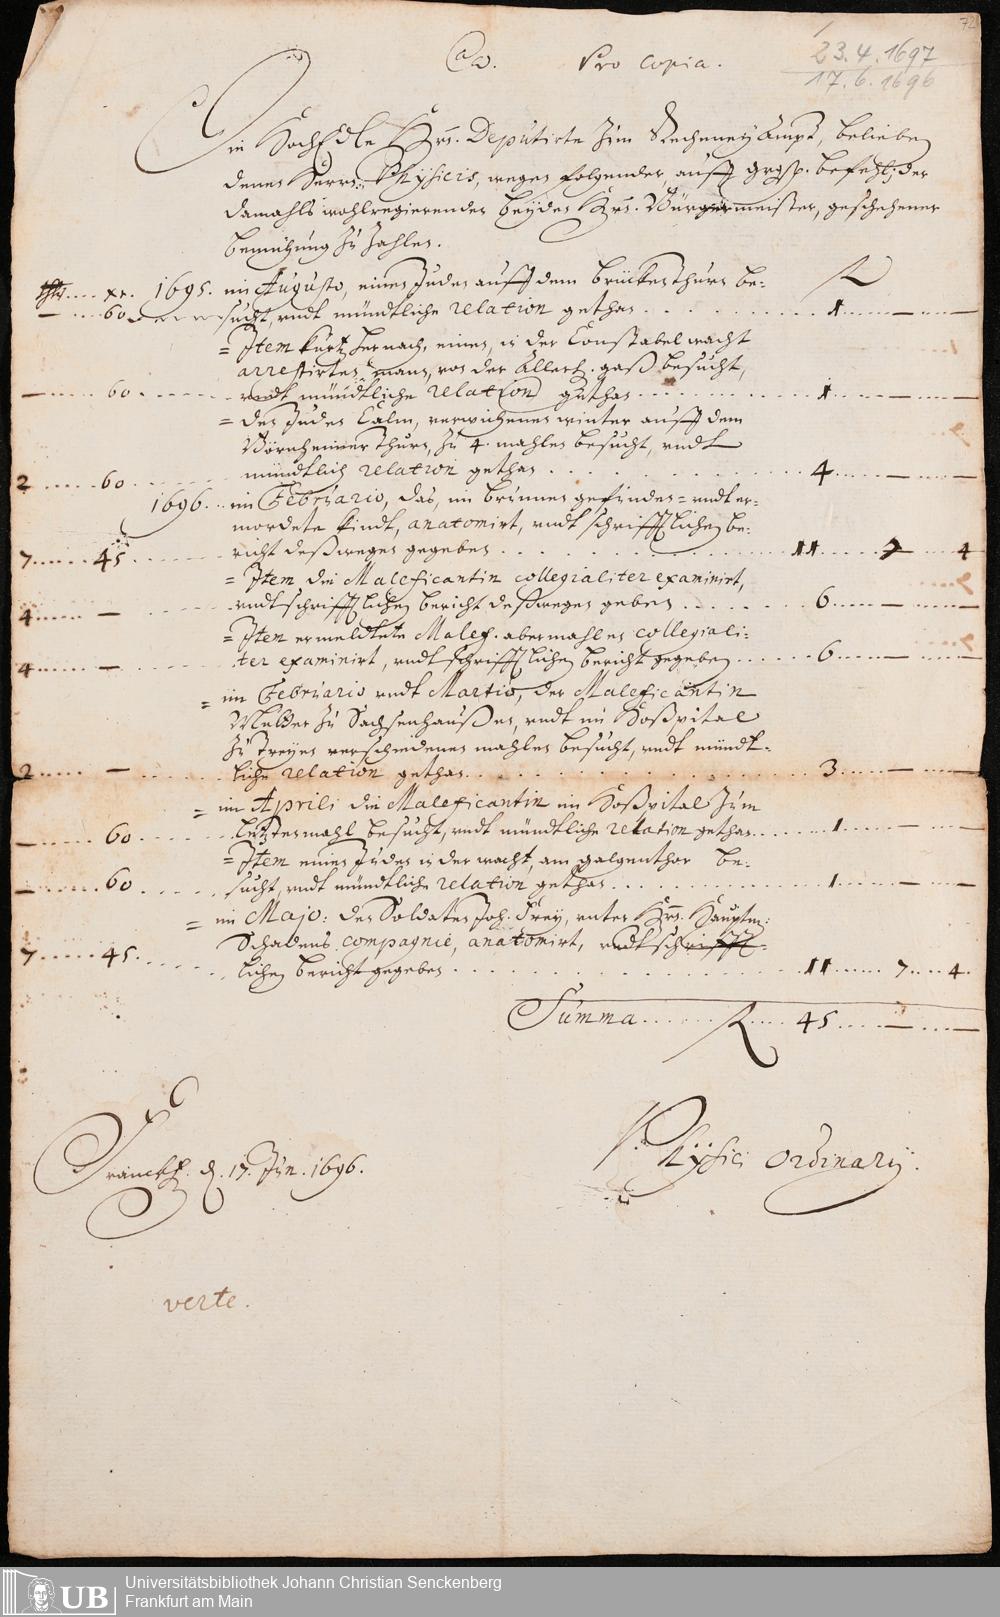 72
23.4.1697
17.6.1696
Pro Copia.
Ein HochEdle Hrn. Deputirte Zum Rechney Ampt, belieben
denen Herrn Physicis, wegen folgender, auff grgsp. befehl, der
damahls wohlregierenden beyden Hrn. Bürgermeister, geschehener
bemühung zu zahlen.
thlr .... xr. 1695. im Augusto, einen Juden auff dem brücken thurn be-
— ... 60 sucht, undt mündtliche relation gethan . . . 1 . — . —
= Item kurtz hernach, einen, in der Constabel wacht
arrestirten mann, von der Allerh. gaß besucht,
— ... 60 . undt mündtliche relation gethan . . . 1 . — . —
= den Juden Calm, verwichenen winter auff dem
Bornheimer thurn, zu 4. mahlen besucht, undt
2 ... 60 . mündtlich relation gethan . . . 4 . — . —
1696. im Februario, das, im brunnen gefunden= undt er-
mordete kindt, anatomirt, undt schrifftlichen be-
7 ... 45 . richt deßwegen gegeben . . . 11 . 7 . 4
= Item die Maleficantin collegialiter examinirt,
4 ... — . undt schrifftlichen bericht deßwegen geben . . . 6 . — . —
= Item ermeldtete Malef. abermahlen collegiali-
4 ... — . ter examinirt, undt schrifftlichen bericht gegeben . . . 6 . — . —
= im Februario undt Martio, der Maleficantin
Mutter zu Sachsenhaußen, undt im Hoßpital
zu dreyen verschiedenen mahlen besucht, undt mündt-
2 ... — . liche relation gethan . . . 3 . — . —
= im Aprili die Maleficantin im Hoßpital zum
— ... 60 . letztenmahl besucht, undt mündtliche relation gethan . . . 1 . — . —
= Item einen Juden in der wacht, am galgenthor be-
— ... 60 . sucht, undt mündtliche relation gethan . . . 1 . — . —
= im Majo: den Soldaten Joh. Frey, unter Hrn. Hauptm:
Schadens compagnie, anatomirt, undt schrifft-
7 ... 45 . lichen bericht gegeben . . . 11 . 7 . 4.
Summa . . . 45 . — . —
Franckf. d. 17. Jun. 1696.
Physici Ordinarij.
verte.
UB
Universitätsbibliothek Johann Christian Senckenberg
Frankfurt am Main